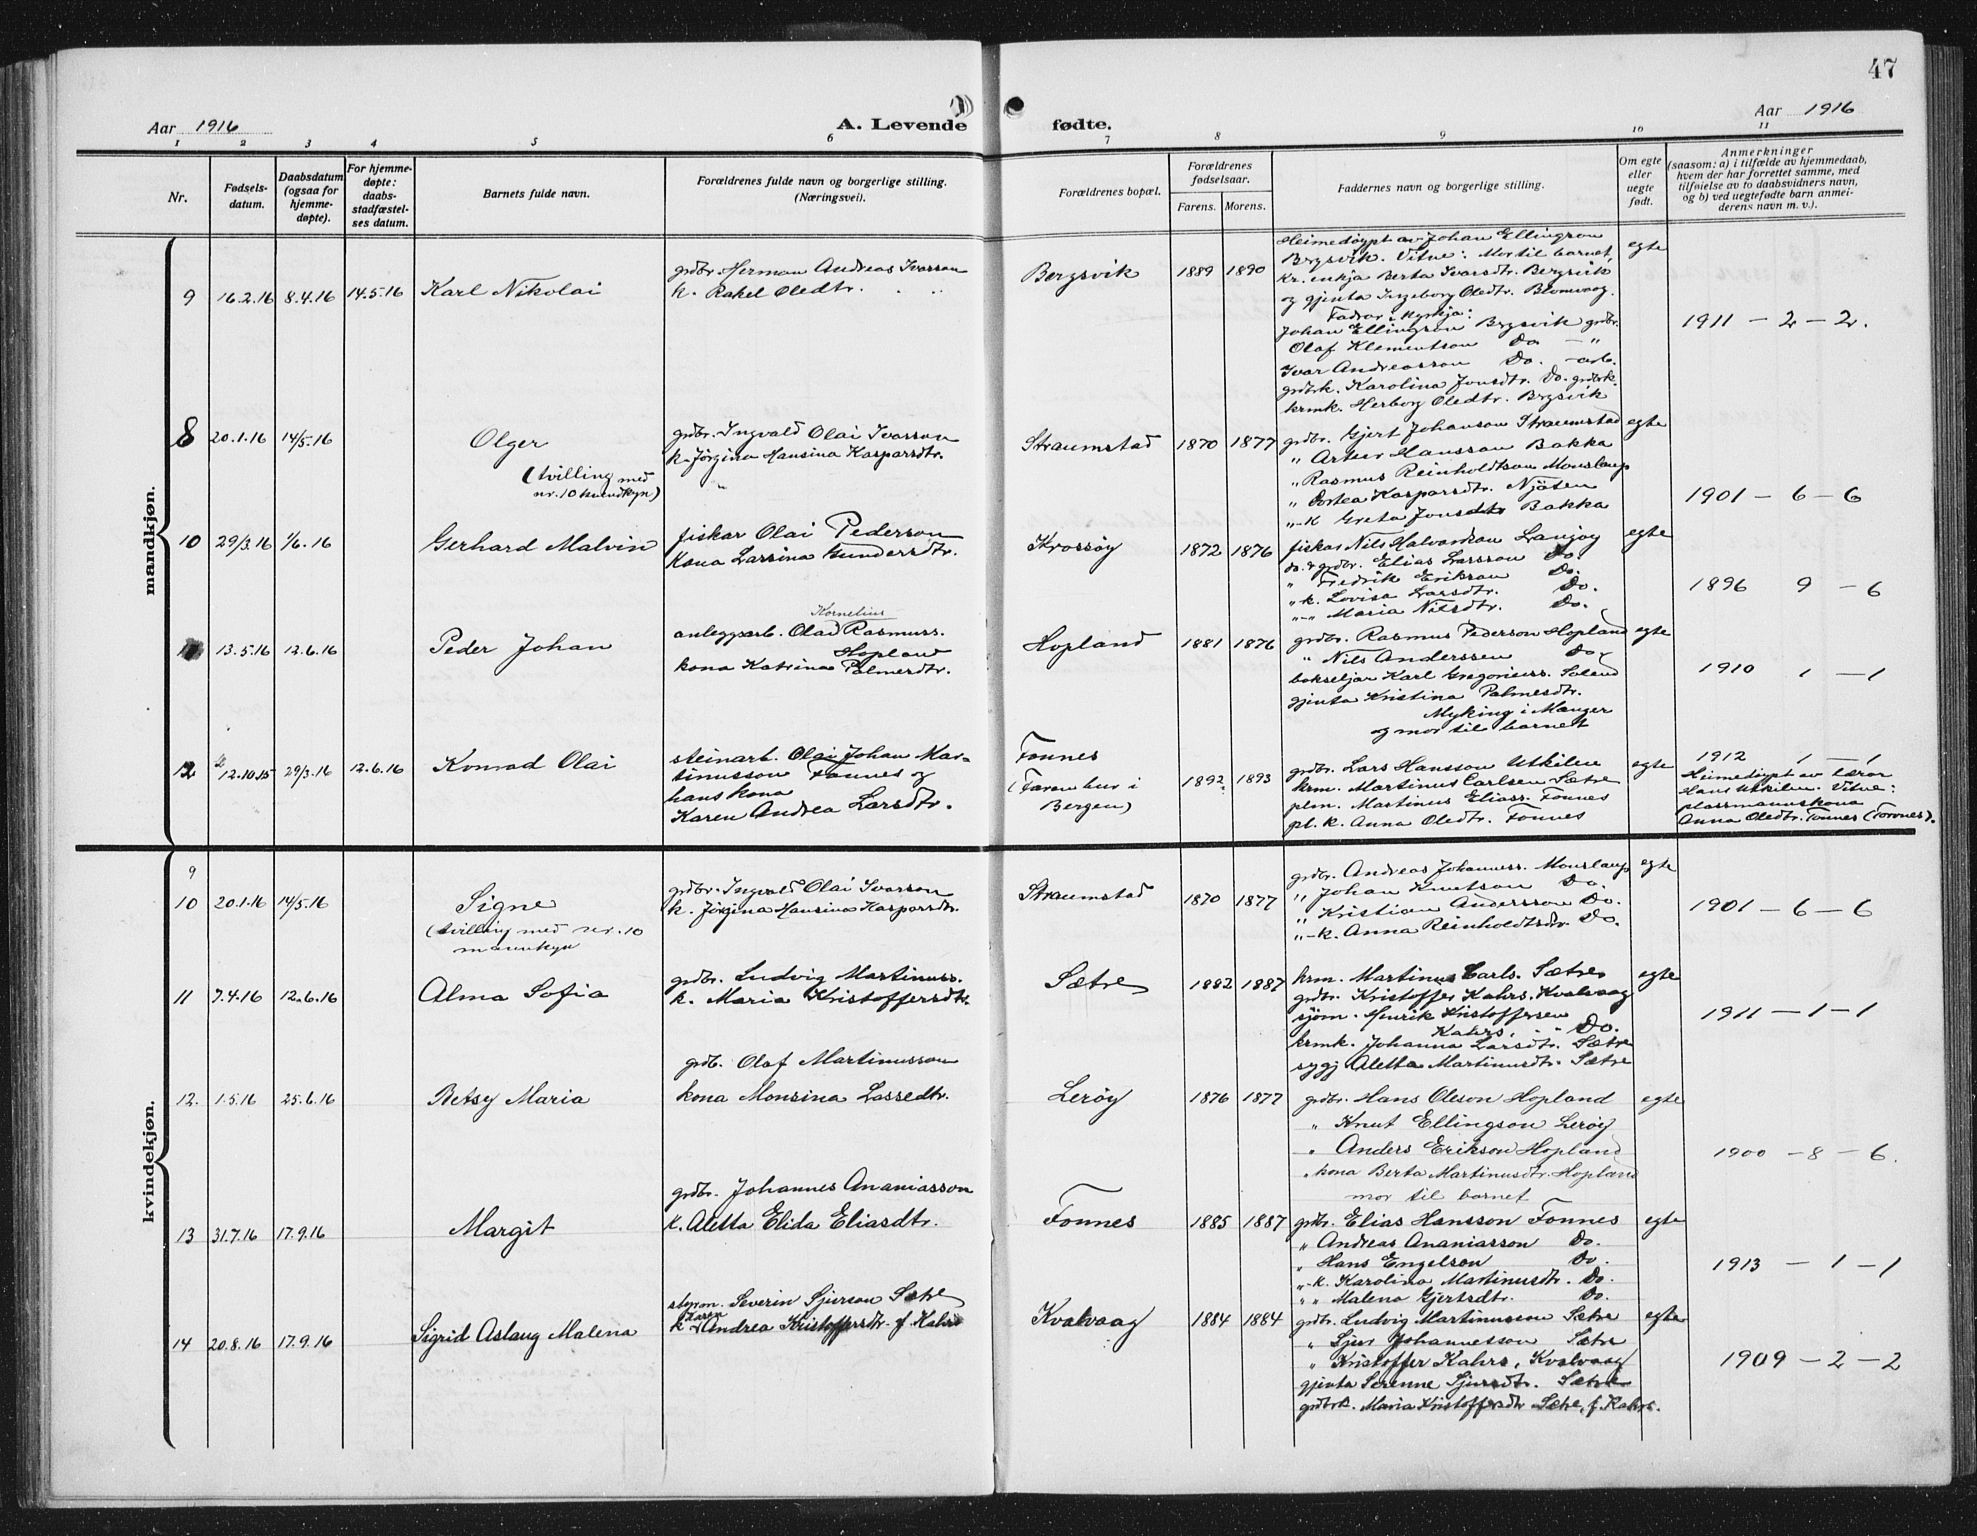 47
Aar 1916
A. Levende
fødte.
Aar 1916
1 2 3 4 5 6 7 8 9 10 11
Nr.
Fødsels-
datum.
Daabsdatum
(ogsaa for
hjemme-
døpte).
For hjemme-
døpte:
daabs-
stadfæstel-
ses datum.
Barnets fulde navn.
Forældrenes fulde navn og borgerlige stilling.
(Næringsvei).
Forældrenes bopæl.
Forældrenes
fødselsaar.
Farens. Morens.
Faddernes navn og borgerlige stilling.
Om egte
eller
uegte
født.
Anmerkninger
(saasom: a) i tilfælde av hjemmedaab,
hvem der har forrettet samme, med
tilføielse av to daabsvidners navn,
og b) ved uegtefødte barn anmel-
derens navn m. v.).
mandkjøn.
9 16.2.16 8.4.16 14.5.16 Karl Nikolai
grdbr. Herman Andreas Ivarson
k. Rakel Oledtr. " "
Bergsvik 1889 1890
Heimedøypt av Johan Ellingson
Bergsvik. Vitne: Mor til barnet,
kr. enkja Berta Ivarsdtr. Bergsvik
og gjenta Ingeborg Oledtr. Blomvaag.
Fadrar i kyrkja:
Johan Ellingson Bergsvik grdbr.
Olaf Klementson Do — "
Ivar Andreasson Do. — arb.
grdbrk. Karolina Jonsdtr. Do. grdbrk.
krmk. Herborg Oledtr. Bergsvik
egte
1911 — 2 — 2.
8 20.1.16 14/5.16 Olger
(tvilling med
nr. 10 kvendkyn)
grdbr. Ingvald Olai Ivarson
k. Jørgina Hansina Kasparsdtr.
"
Straumstad 1870 1877
grdbr. Gjert Johanson Straumstad
" Artur Hansson Bakka
" Rasmus Reinholdtson Monslaup
" Dortea Kasparsdtr. Njøten
"-k Greta Jonsdtr Bakka
egte
1901 — 6 — 6
10 29/3.16 1/6.16 Gerhard Malvin
fiskar Olai Pederson
kona Larsina Gundersdtr.
Krossøy 1872 1876
fiskar Nils Halvardson Langøy
do. & grdbr. Elias Larsson Do.
" Fredrik Erikson Do.
"k. Lovisa Larsdtr. Do.
"-" Maria Nilsdtr. Do.
egte
1896 9 — 6
11 13.5.16 12.6.16 Peder Johan
Kornelius
anleggsarb. Olad Rasmuss.
Hopland
kona Katrina Palmerdtr.
Hopland 1881 1876
grdbr. Rasmus Pederson Hopland
" Nils Anderssen Do.
bokseljar Karl Gregoriuss. Soland
gjenta Kristina Palmesdtr.
Myking i Manger
og mor til barnet
egte
1910 1 — 1
12 12.10.15 29/3.16 12.6.16 Konrad Olai
steinarb. Olai Johan Mar-
tinusson Fonnes og
hans kona
Karen Andrea Larsdtr.
Fonnes
(Faren bur i
Bergen)
1892 1893
grdbr. Lars Hansson Utkilen
krm. Martinus Carlsen Sætre
plm. Martinus Eliass. Fonnes
pl. k. Anna Oledtr. Fonnes
egte
1912 1 — 1
Heimedøypt av lærar
Hans Utkilen. Vitne:
plassmannskona
Anna Oledtr. Fonnes (Fornes).
kvindekjøn.
9
10 20.1.16 14/5.16 Signe
(tvilling med nr. 10
mannkyn
grdbr. Ingvald Olai Ivarson
k. Jørgina Hansina Kasparsdtr.
Straumstad 1870 1877
grdbr. Andreas Johanness. Monslaup
" Johan Knutson Do.
" Kristian Andersson Do.
"-k. Anna Reinholdtsdtr. Do.
egte
1901 — 6 — 6
11 7.4.16 12.6.16 Alma Sofia
grdbr. Ludvig Martinuss.
k. Maria Kristoffersdtr.
Sætre 1882 1887
krm. Martinus Carls. Sætre
grdbr. Kristoffer Kahrs, Kvalvaag
sjøm. Henrik Kristoffersen
Kahrs, " Do.
krmk. Johanna Larsdtr. Sætre
sygj Aletta Martinusdtr. Sætre
egte
1911 — 1 — 1
12. 1.5.16 25.6.16 Betsy Maria
grdb. Olaf Martinusson
kona Monsina Lassedtr.
Lerøy 1876 1877
grdbr. Hans Oleson Hopland
" Knut Ellingson Lerøy
" Anders Erikson Hopland
" kona Berta Martinusdtr. Hopland
mor til barnet
egte
1900 — 8 — 6.
13 31.7.16 17.9.16 Margit
grdbr. Johannes Ananiasson
k. Aletta Elida Eliasdtr.
Fonnes 1885 1887
grdbr. Elias Hansson Fonnes
" Andreas Ananiasson Do.
" Hans Engelson Do.
"-k. Karolina Martinusdtr. Do.
" " Malena Gjertsdtr. Do.
egte
1913 — 1 — 1
14 20.8.16 17.9.16 Sigrid Aslaug Malena
styrm. Severin Sjurson Sætre
Karen
k Andrea Kristoffersdtr. f Kahrs
Kvalvaag 1884 1884
grdbr. Ludvig Martinusson Sætre
" Sjur Johannesson Sætre
" Kristoffer Kahrs, Kvalvaag
gjenta Serenne Sjursdtr. Sætre
grdbrk. Maria Kristoffersdtr Sætre, f. Kahrs.
egte
1909 — 2 — 2